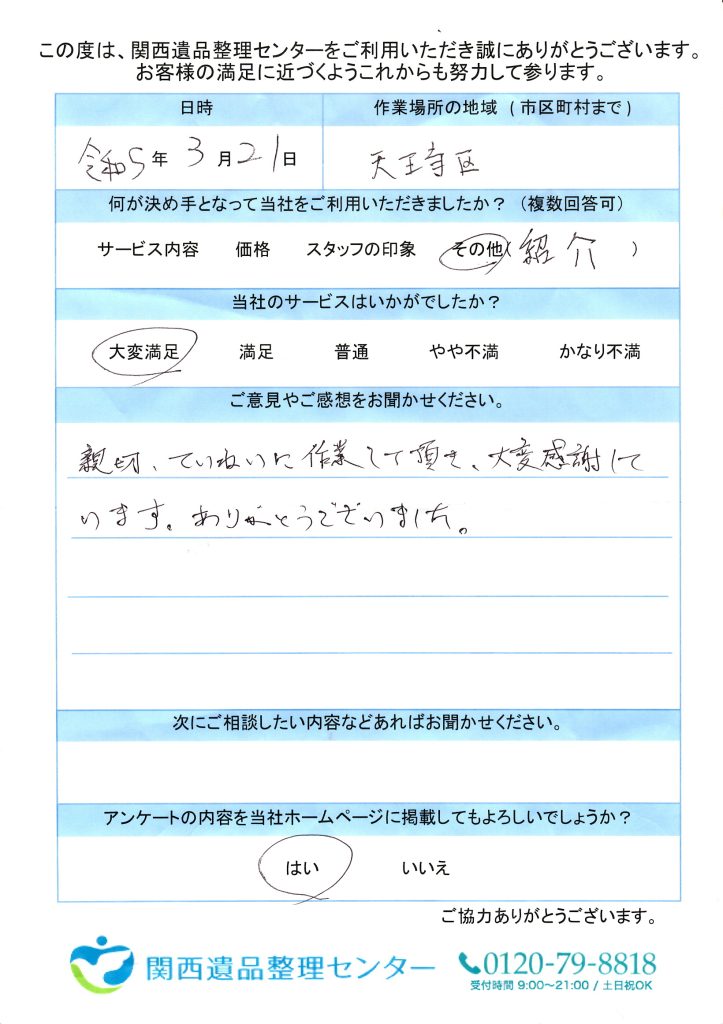 この度は、関西遺品整理センターをご利用いただき誠にありがとうございます。
お客様の満足に近づくようこれからも努力して参ります。
日時
作業場所の地域（市区町村まで）
令和5年3月21日
天王寺区
何が決め手となって当社をご利用いただきましたか？（複数回答可）
サービス内容 価格 スタッフの印象 その他（紹介）
当社のサービスはいかがでしたか？
大変満足 満足 普通 やや不満 かなり不満
ご意見やご感想をお聞かせください。
親切、ていねいに作業して頂き、大変感謝して
います。ありがとうございました。
次にご相談したい内容などあればお聞かせください。
アンケートの内容を当社ホームページに掲載してもよろしいでしょうか？
はい いいえ
ご協力ありがとうございます。
関西遺品整理センター
0120-79-8818
受付時間 9:00～21:00 / 土日祝OK